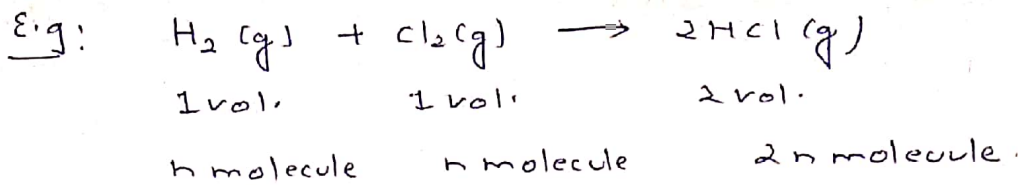 E.g: H₂ (g) + Cl₂ (g) → 2HCl (g)
1 vol. 1 vol. 2 vol.
n molecule n molecule 2n molecule.